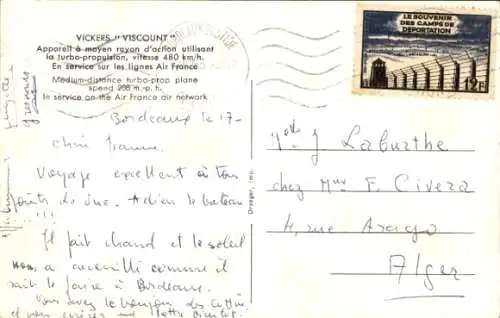 VICKERS "VISCOUNT"
Appareil à moyen rayon d'action utilisant
la turbo-propulsion, vitesse 480 km/h.
En service sur les lignes Air France
Medium-distance turbo-prop plane
speed 298 m. p. h.
In service on the Air France air network
LE SOUVENIR
DES CAMPS DE
DEPORTATION
12F
Draeger, imp.
Bordeaux le 17-
Voyage excellent à tous
points de vue. Adieu le bateau
!!!
Il fait chaud et le soleil
a accueilli comme il
sait le faire à Bordeaux.
Vous avez le bonjour des
et vous lettre bientôt.
Melle J. Laburthe
chez Mme F. Civera
4, rue Arago
Alger